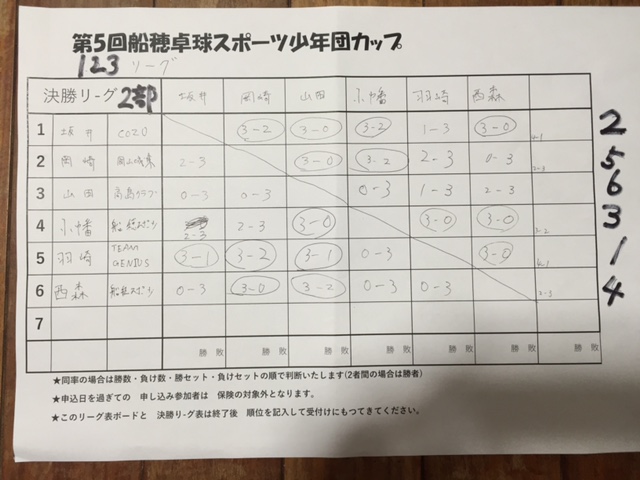 第5回船穂卓球スポーツ少年団カップ
123 リーグ
決勝リーグ 2部 坂井 岡崎 山田 小幡 羽崎 西森
1 坂井 COZO 3-2 3-0 3-2 1-3 3-0 4-1 2
2 岡崎 2-3 3-0 3-2 2-3 0-3 2-3 5
3 山田 高島クラブ 0-3 0-3 0-3 1-3 2-3 6
4 小幡 船穂スポーツ 2-3 2-3 3-0 3-0 3-0 3-2 3
5 羽崎 TEAM GENIUS 3-1 3-2 3-1 0-3 3-0 4-1 1
6 西森 船穂スポーツ 0-3 3-0 3-2 0-3 0-3 2-3 4
7
勝 敗 勝 敗 勝 敗 勝 敗 勝 敗 勝 敗 勝 敗 勝 敗
★同率の場合は勝数・負け数・勝セット・負けセットの順で判断いたします(2者間の場合は勝者)
★申込日を過ぎての 申し込み参加者は 保険の対象外となります。
★このリーグ表ボードと 決勝リ-グ表は終了後 順位を記入して受付けにもつてきてください。